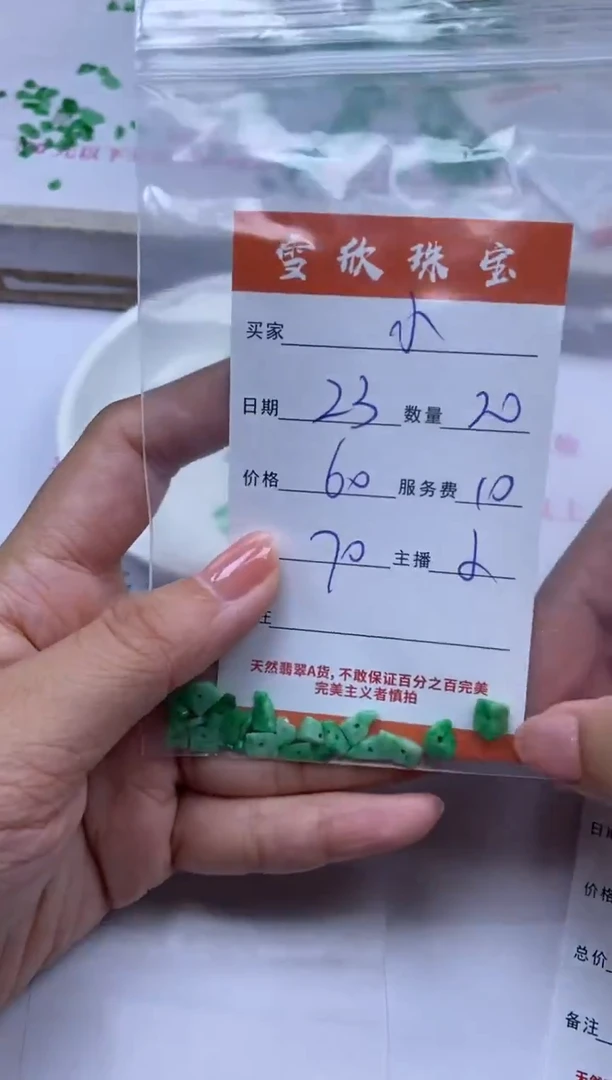 雪欣珠宝
买家 小
日期 23 数量 20
价格 60 服务费 10
70 主播
天然翡翠A货，不敢保证百分之百完美
完美主义者慎拍
价格
总价
备注